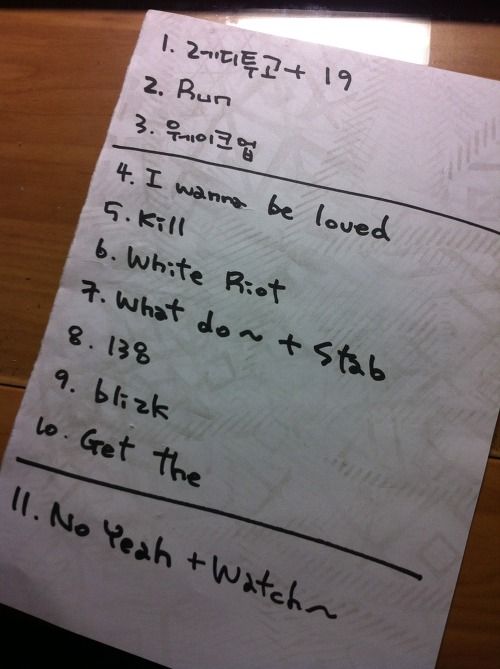 1. 레디투고 + 19
2. Run
3. 웨이크업
4. I wanna be loved
5. Kill
6. White Riot
7. What do~ + Stab
8. 138
9. blizk
10. Get the
11. No Yeah + Watch~